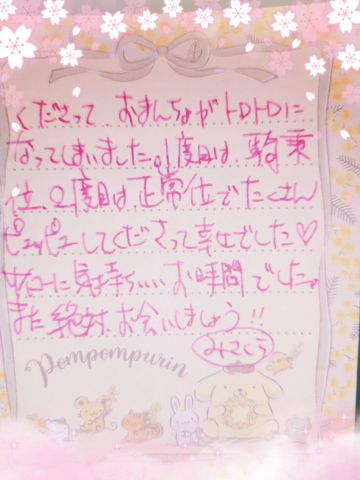 くださって、おまんちょがトロトロに
なってしまいました。1度目は、騎乗
位、2度目は正常位でたくさん
ピュッピューしてくださって幸せでした♡
サイコーに気持ちいいお時間でした。
また絶対、お会いしましょう!!
みさくら
Pompompurin